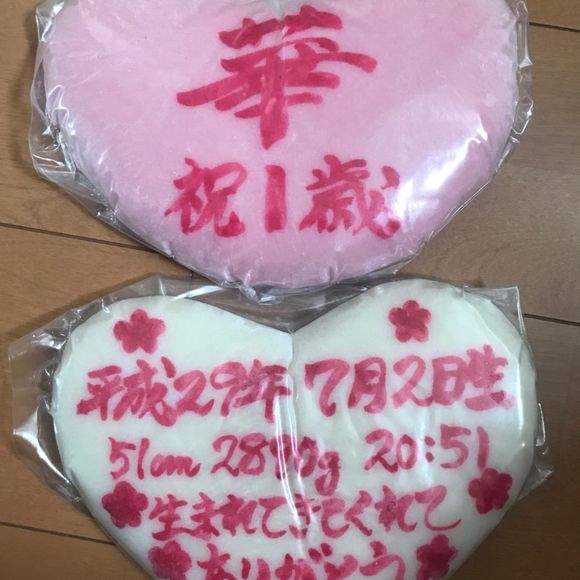 華
祝1歳
平成29年 7月2日生
51cm 2890g 20:51
生まれてきてくれて
ありがとう